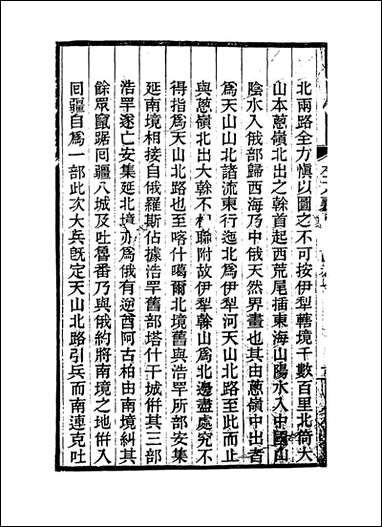 北兩路全方愼以圖之不可按伊犁轄境千數百里北倚大
山本蔥嶺北出之榦首起西荒尾插東海山陽水入中國山
陰水入俄部歸西海乃中俄天然界畫也其由蔥嶺中出者
爲天山山北諸流東行迤北爲伊犁河天山北路至此而止
與蔥嶺北出大榦不相聯附故伊犁榦山爲北邊盡處究不
得指爲天山北路也至喀什噶爾北境舊與浩罕所部安集
延南境相接自俄羅斯佔據浩罕舊部塔什干城倂其三部
浩罕遂亡安集延北境亦爲俄有逆酋阿古柏由南境糾其
餘眾竄踞囘疆八城及吐魯番乃與俄約將南境之地倂入
囘疆自爲一部此次大兵旣定天山北路引兵而南連克吐